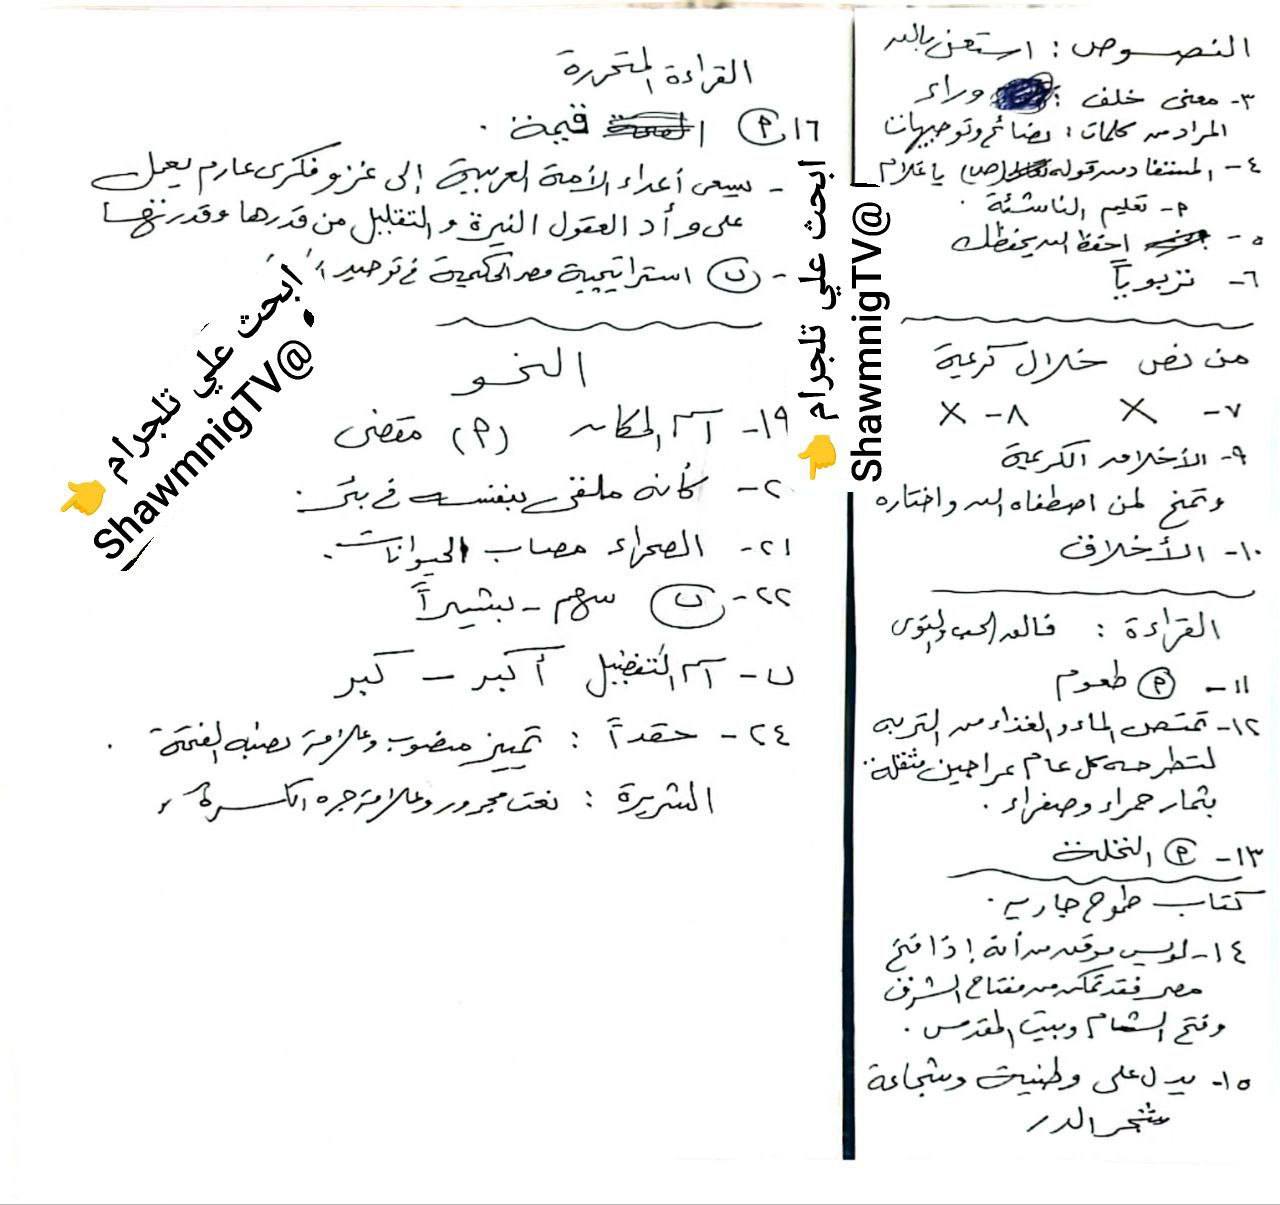 النصوص : استعن بالله
٣- معنى خلف : وراء
المراد من كلمات : نصائح وتوجيهات
٤- المستفاد من قوله (ص) يا غلام
م- تعليم الناشئة .
٥- احفظ الله يحفظك
٦- تربوياً
من نص خلال كريمة
٧- X ٨- X
٩- الأخلاق الكريمة
وتمنح لمن اصطفاه الله واختاره
١٠- الأخلاق
القراءة : فالق الحب والنوى
١١- (م) طعوم
١٢- تمتص الماء والغذاء من التربة
لتطرحه كل عام عراجين مثقلة
بثمار حمراء وصفراء .
١٣- (م) النخلة
كتاب طموح جارية .
١٤- لويس موقن من أنه إذا فتح
مصر فقد تمكن من مفتاح الشرق
وفتح الشام وبيت المقدس .
١٥- يدل على وطنية وشجاعة
شجر الدر
القراءة المتحررة
١٦ (م) قيمة .
- يسعى أعداء الأمة العربية إلى غزو فكرى عارم يعمل
على وأد العقول النيرة والتقليل من قدرها وقدر
- (ب) استراتيجية مصر الحكيمة في توحيد
النحو
١٩- اسم المكان (م) مقضى
٢٠- كأنه ملقى بنفسه في بئر .
٢١- الصحراء مصاب الحيوانات .
٢٢- (ب) سهم - بشيراً
ب- اسم التفضيل أكبر - كبر
٢٤- حقداً : تمييز منصوب وعلامة نصبه الفتحة .
الشريرة : نعت مجرور وعلامة جره الكسرة
ابحث علي تلجرام 👈
@ShawmnigTV
ابحث علي تلجرام 👈
@ShawmnigTV